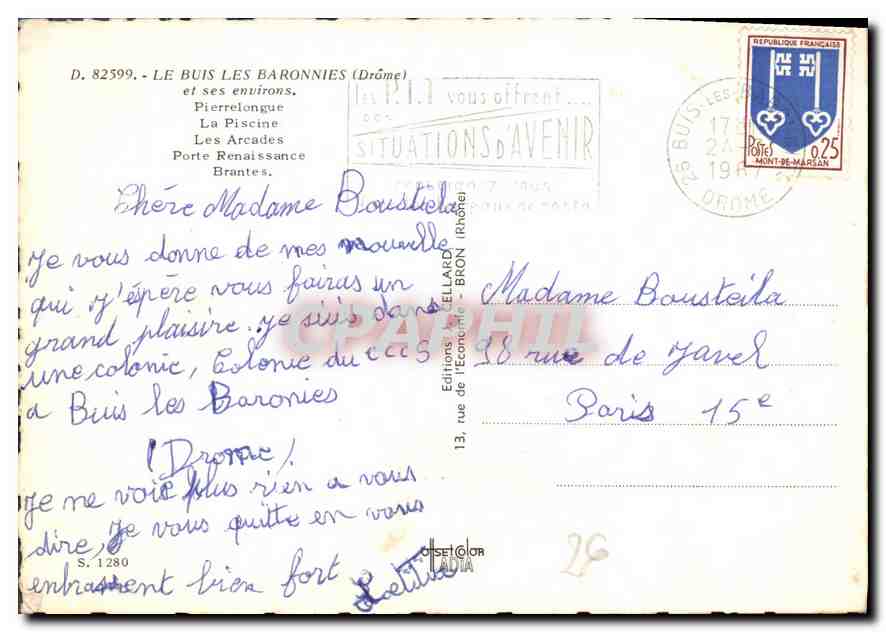 D. 82599. - LE BUIS LES BARONNIES (Drôme)
et ses environs.
Pierrelongue
La Piscine
Les Arcades
Porte Renaissance
Brantes.
les P.T.T vous offrent...
SITUATIONS D'AVENIR
26 BUIS-LES-B
17
2
196
DROME
REPUBLIQUE FRANÇAISE
POSTES
0,25
MONT-DE-MARSAN
Chére Madame Bousteila
Je vous donne de mes nouvelle
qui j'éspère vous fairas un
grand plaisire. je suis dans
une colonie, Colonie du CCCS
a Buis les Baronies
(Drome)
Je ne voie plus rien a vous
dire, je vous quitte en vous
enbrassent bien fort
Laetitia
S. 1280
Editions CELLARD
13, rue de l'Economie - BRON (Rhône)
Madame Bousteila
98 rue de Javel
Paris 15e
OFFSET COLOR
LADIA
26
CPAPHIL